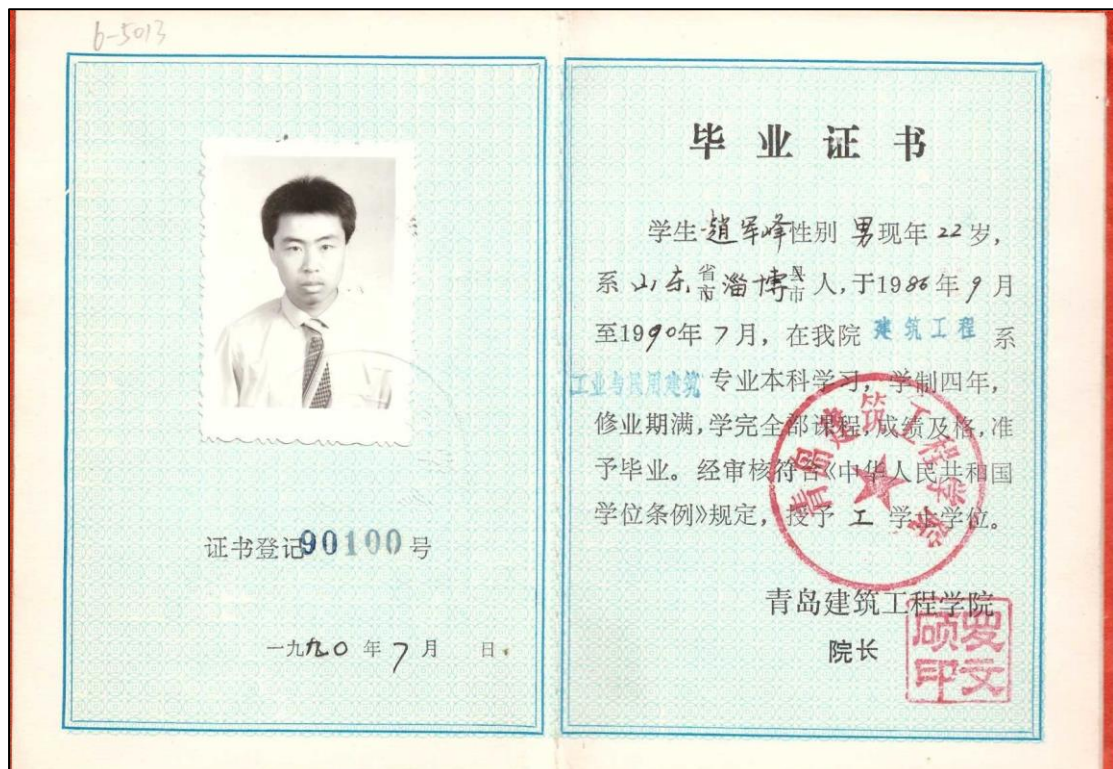 6-5013
证书登记90100号
一九九0年7月 日
毕业证书
学生 趙军峰性别 男现年22岁,
系 山东省市淄博县市人,于1986年9月
至1990年7月,在我院 建筑工程 系
工业与民用建筑 专业本科学习,学制四年,
修业期满,学完全部课程,成绩及格,准
予毕业。经审核符合《中华人民共和国
学位条例》规定,授予 工 学士学位。
青岛建筑工程学院
青岛建筑工程学院
院长
罗文
硕印